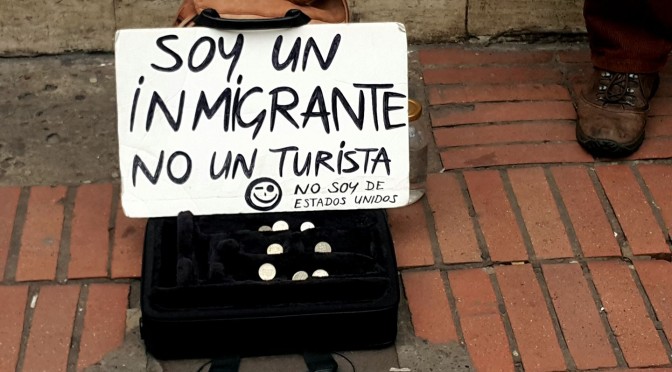 SOY UN
iNMiGRANTE
NO UN TURiSTA
NO SOY DE
ESTADOS UNIDOS